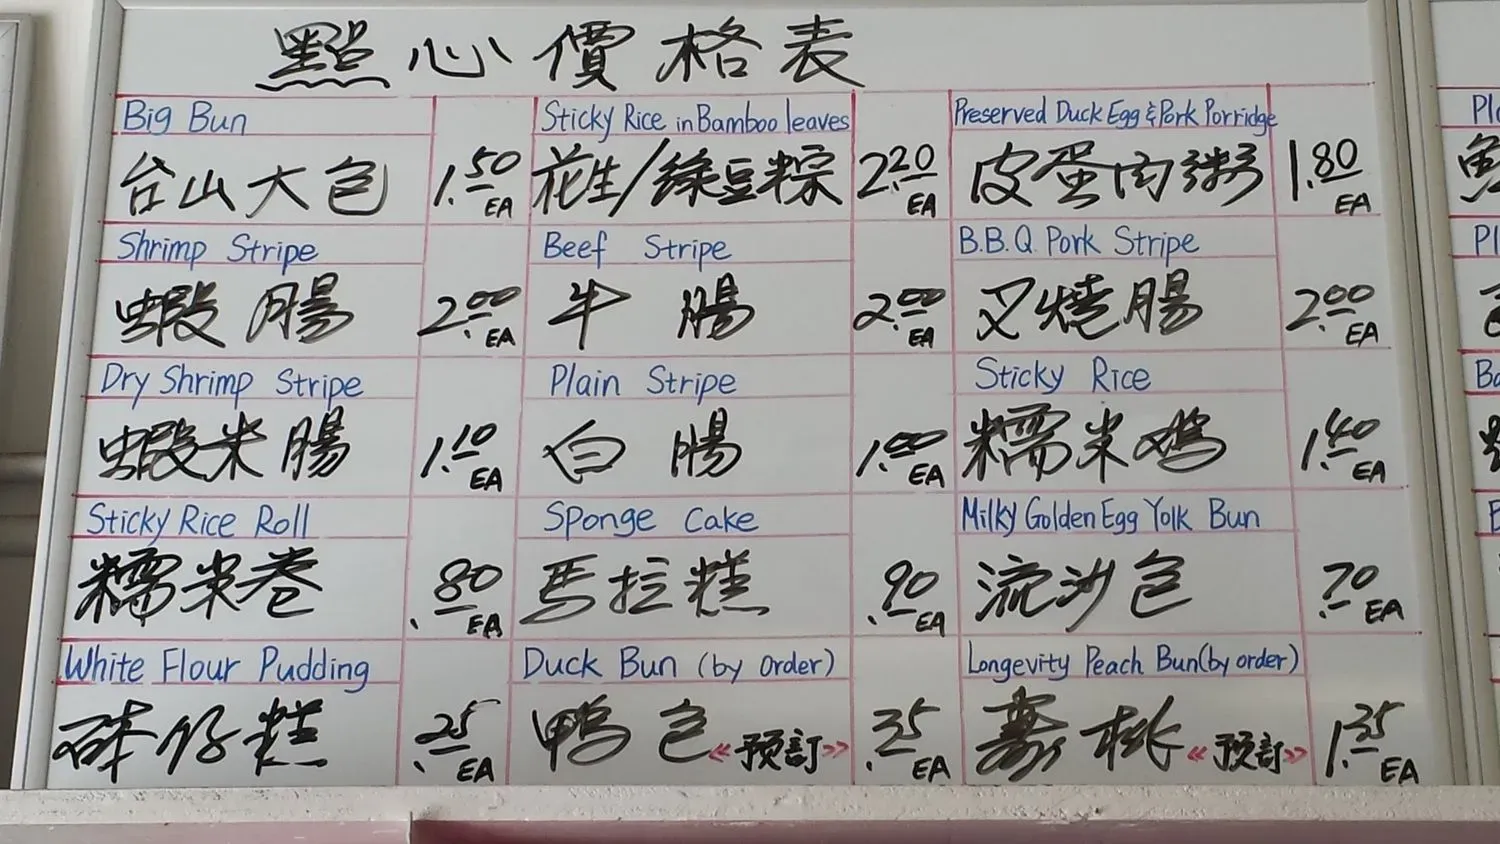 點心價格表
Big Bun
台山大包 1.50 EA
Sticky Rice in Bamboo leaves
花生/綠豆粽 2.20 EA
Preserved Duck Egg & Pork Porridge
皮蛋肉粥 1.80 EA
Shrimp Stripe
蝦腸 2.00 EA
Beef Stripe
牛腸 2.00 EA
B.B.Q. Pork Stripe
叉燒腸 2.00 EA
Dry Shrimp Stripe
蝦米腸 1.10 EA
Plain Stripe
白腸 1.00 EA
Sticky Rice
糯米鸡 1.40 EA
Sticky Rice Roll
糯米卷 .80 EA
Sponge Cake
馬拉糕 .90 EA
Milky Golden Egg Yolk Bun
流沙包 .70 EA
White Flour Pudding
砵仔糕 .25 EA
Duck Bun (by order)
鴨包 《预訂》 .35 EA
Longevity Peach Bun (by order)
壽桃 《预訂》 1.35 EA